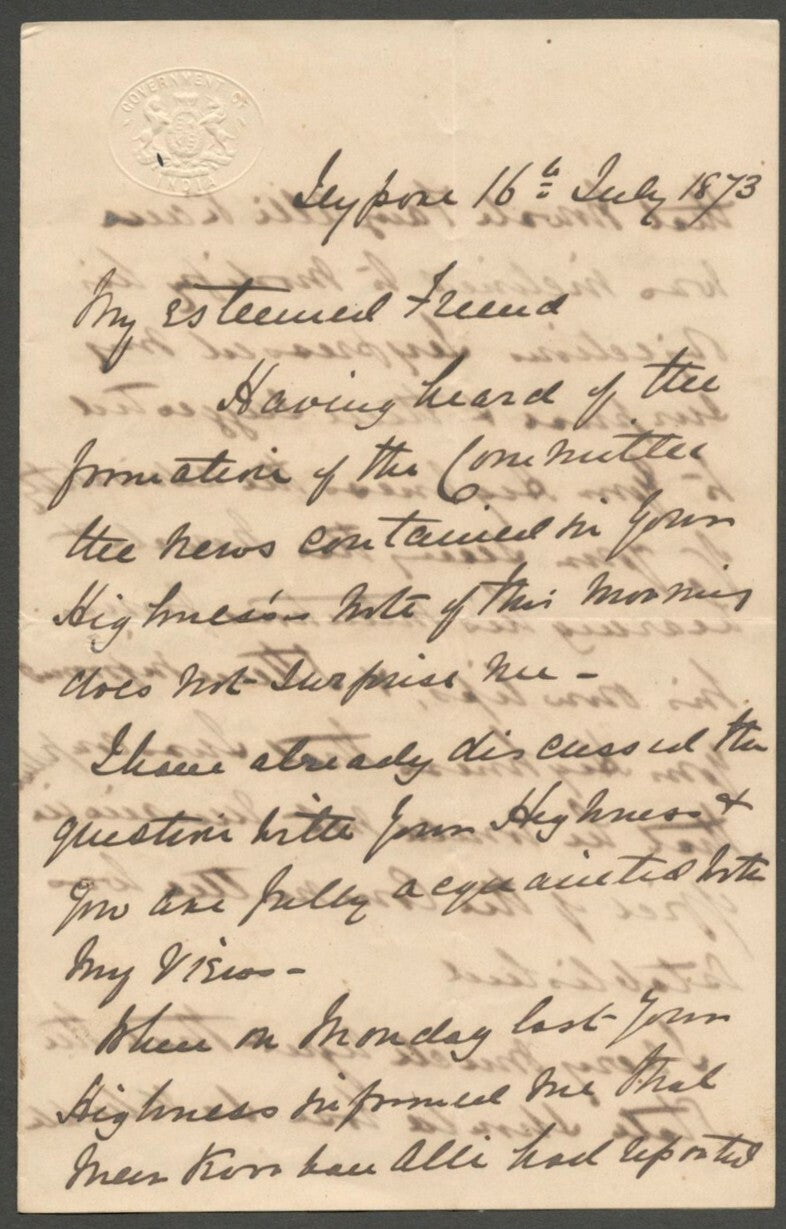 GOVERNMENT OF
INDIA
Jeypore 16th July 1873
My Esteemed Friend
Having heard of the
formation of the Committee
the news contained in Your
Highness's note of this morning
does not surprise me -
I have already discussed the
question with Your Highness &
you are fully acquainted with
my views -
When on Monday last Your
Highness informed me that
Meer Koorban Alli had reported